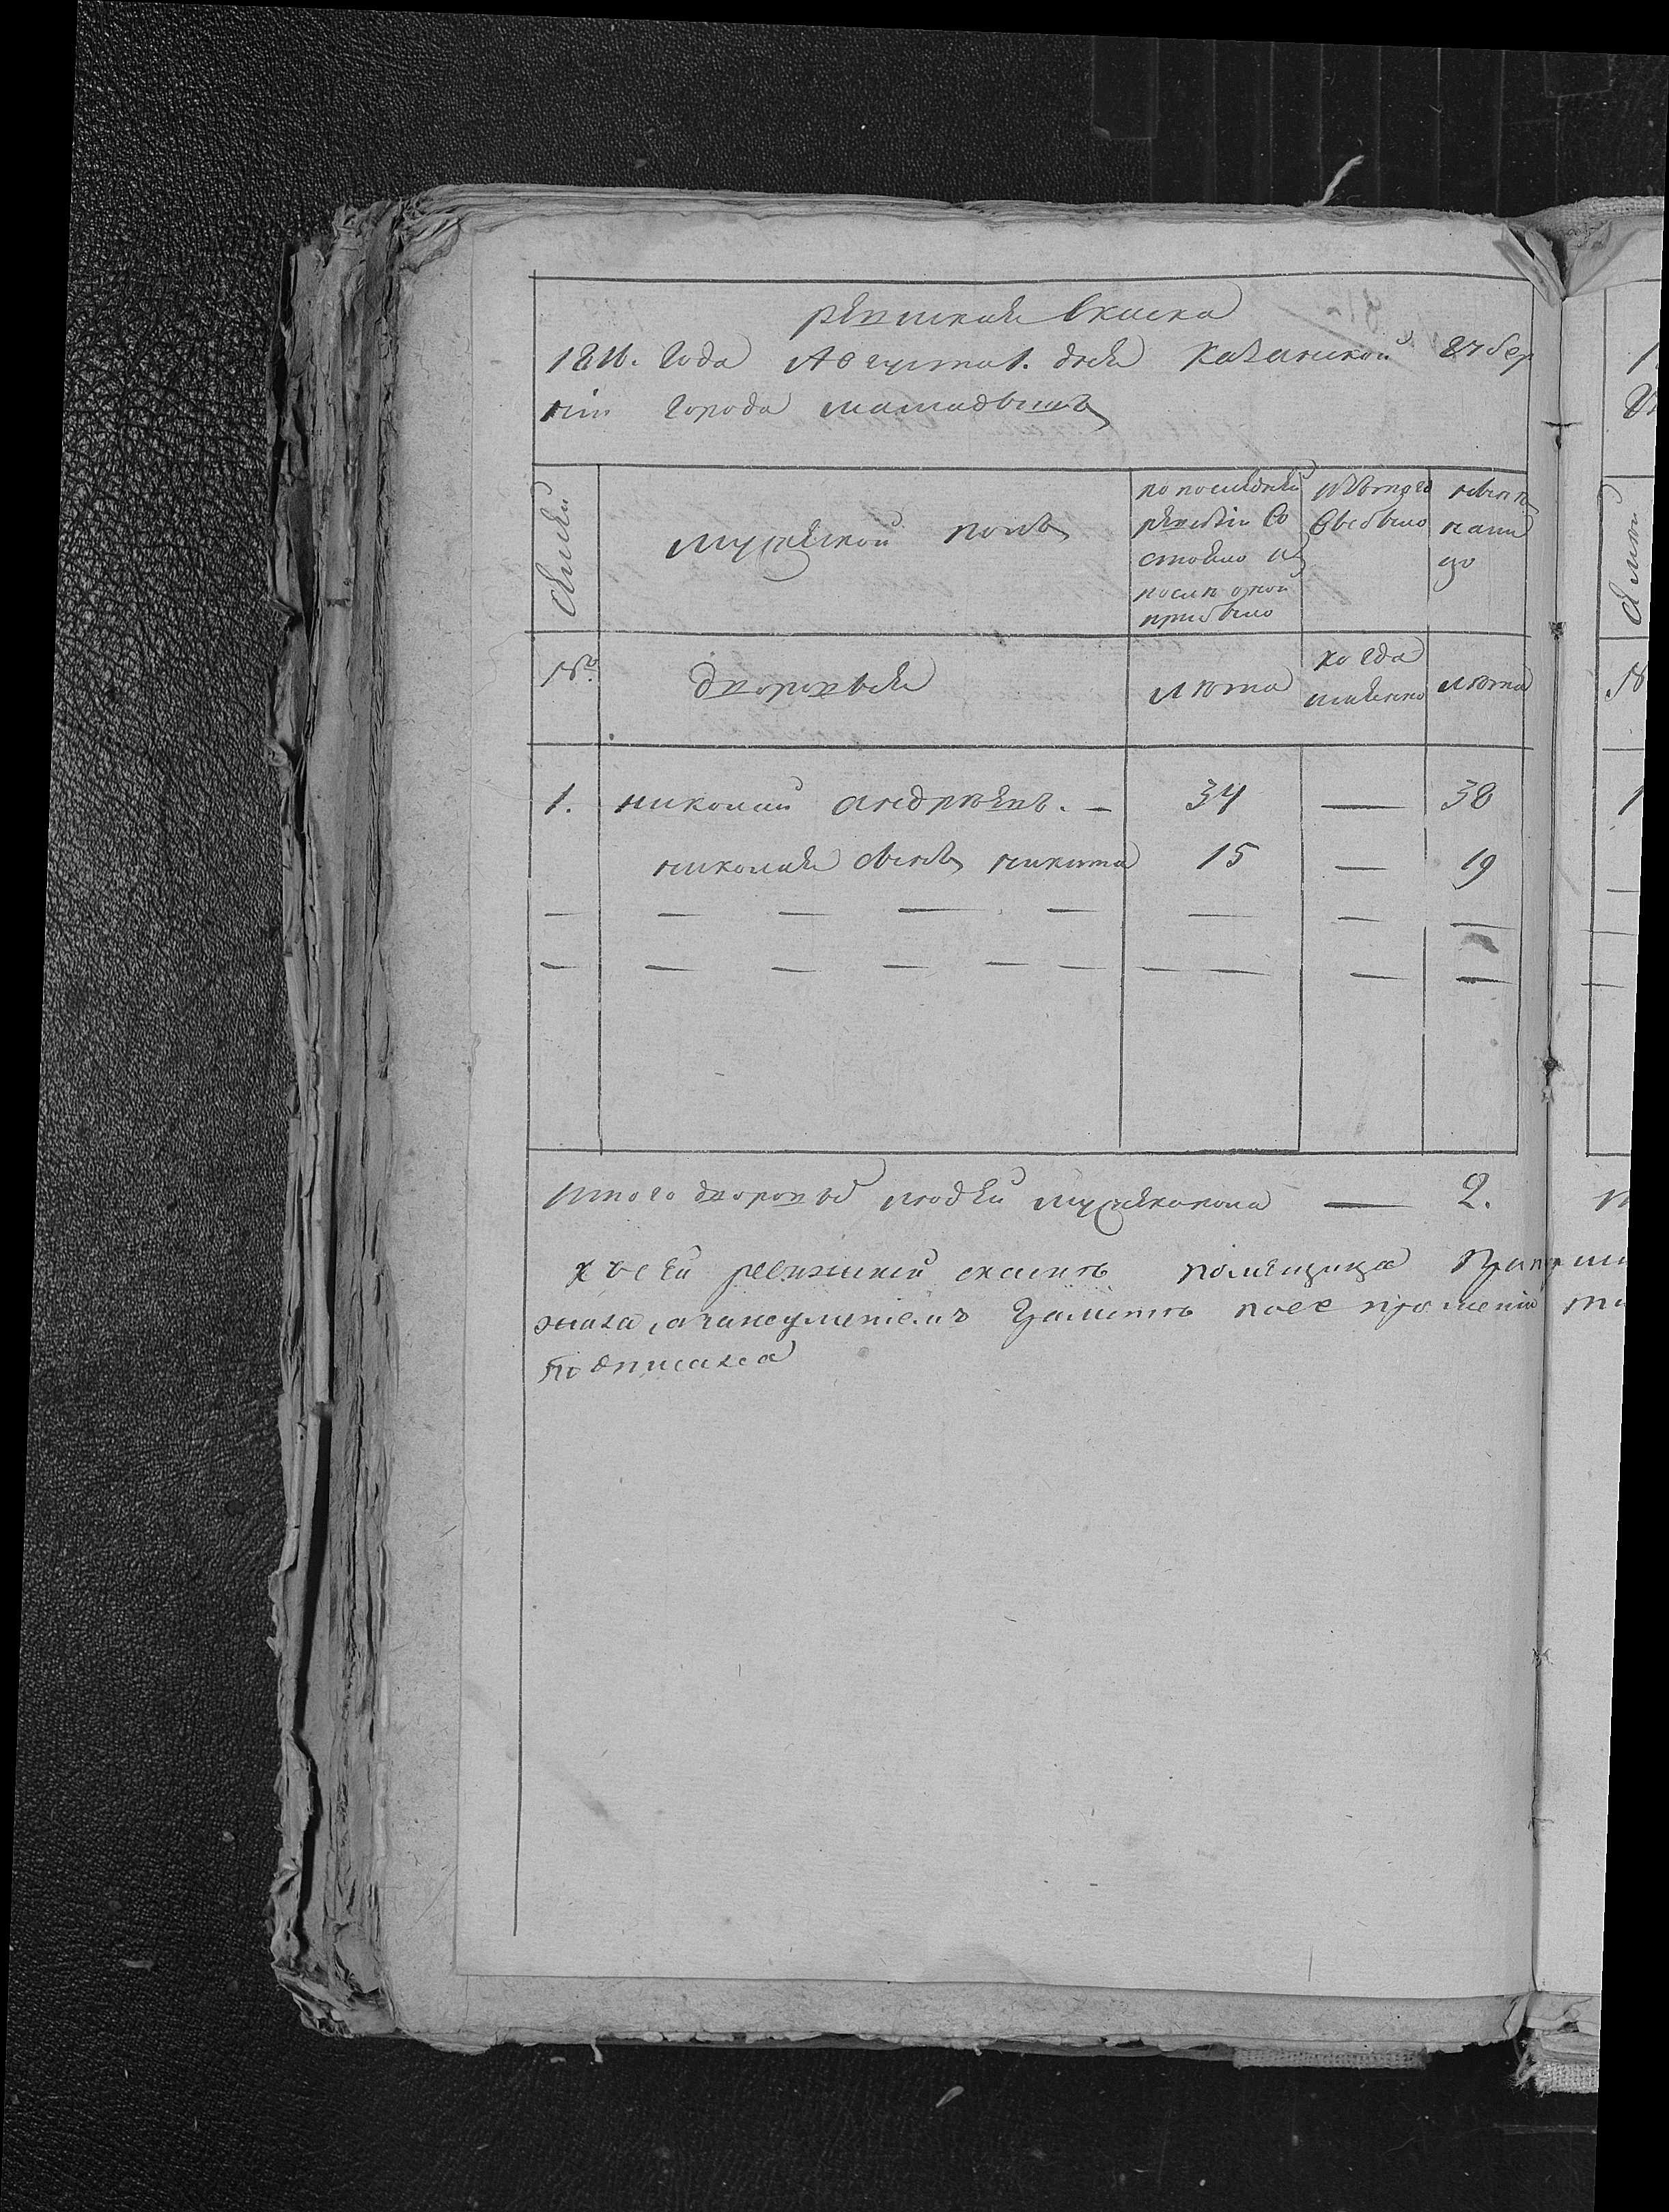 ревиская скаска
1816. года Августа 1. дня Казанской губер
нiи города мамадышъ
Семьи
мужеской полъ
по последней
ревизiи со
стояло и
после оной
прибыло
изътого
выбыло
ныне в
нали
цо
№
дворовые
лета
когда
имянно
лета
1. николай андреевъ. — 34 — 38
николая сынъ никита 15 — 19
итого дворовыхъ людей мужескапола — 2.
Ксей ревизской скаске помещица
грамоте поее прошенiю
подписался